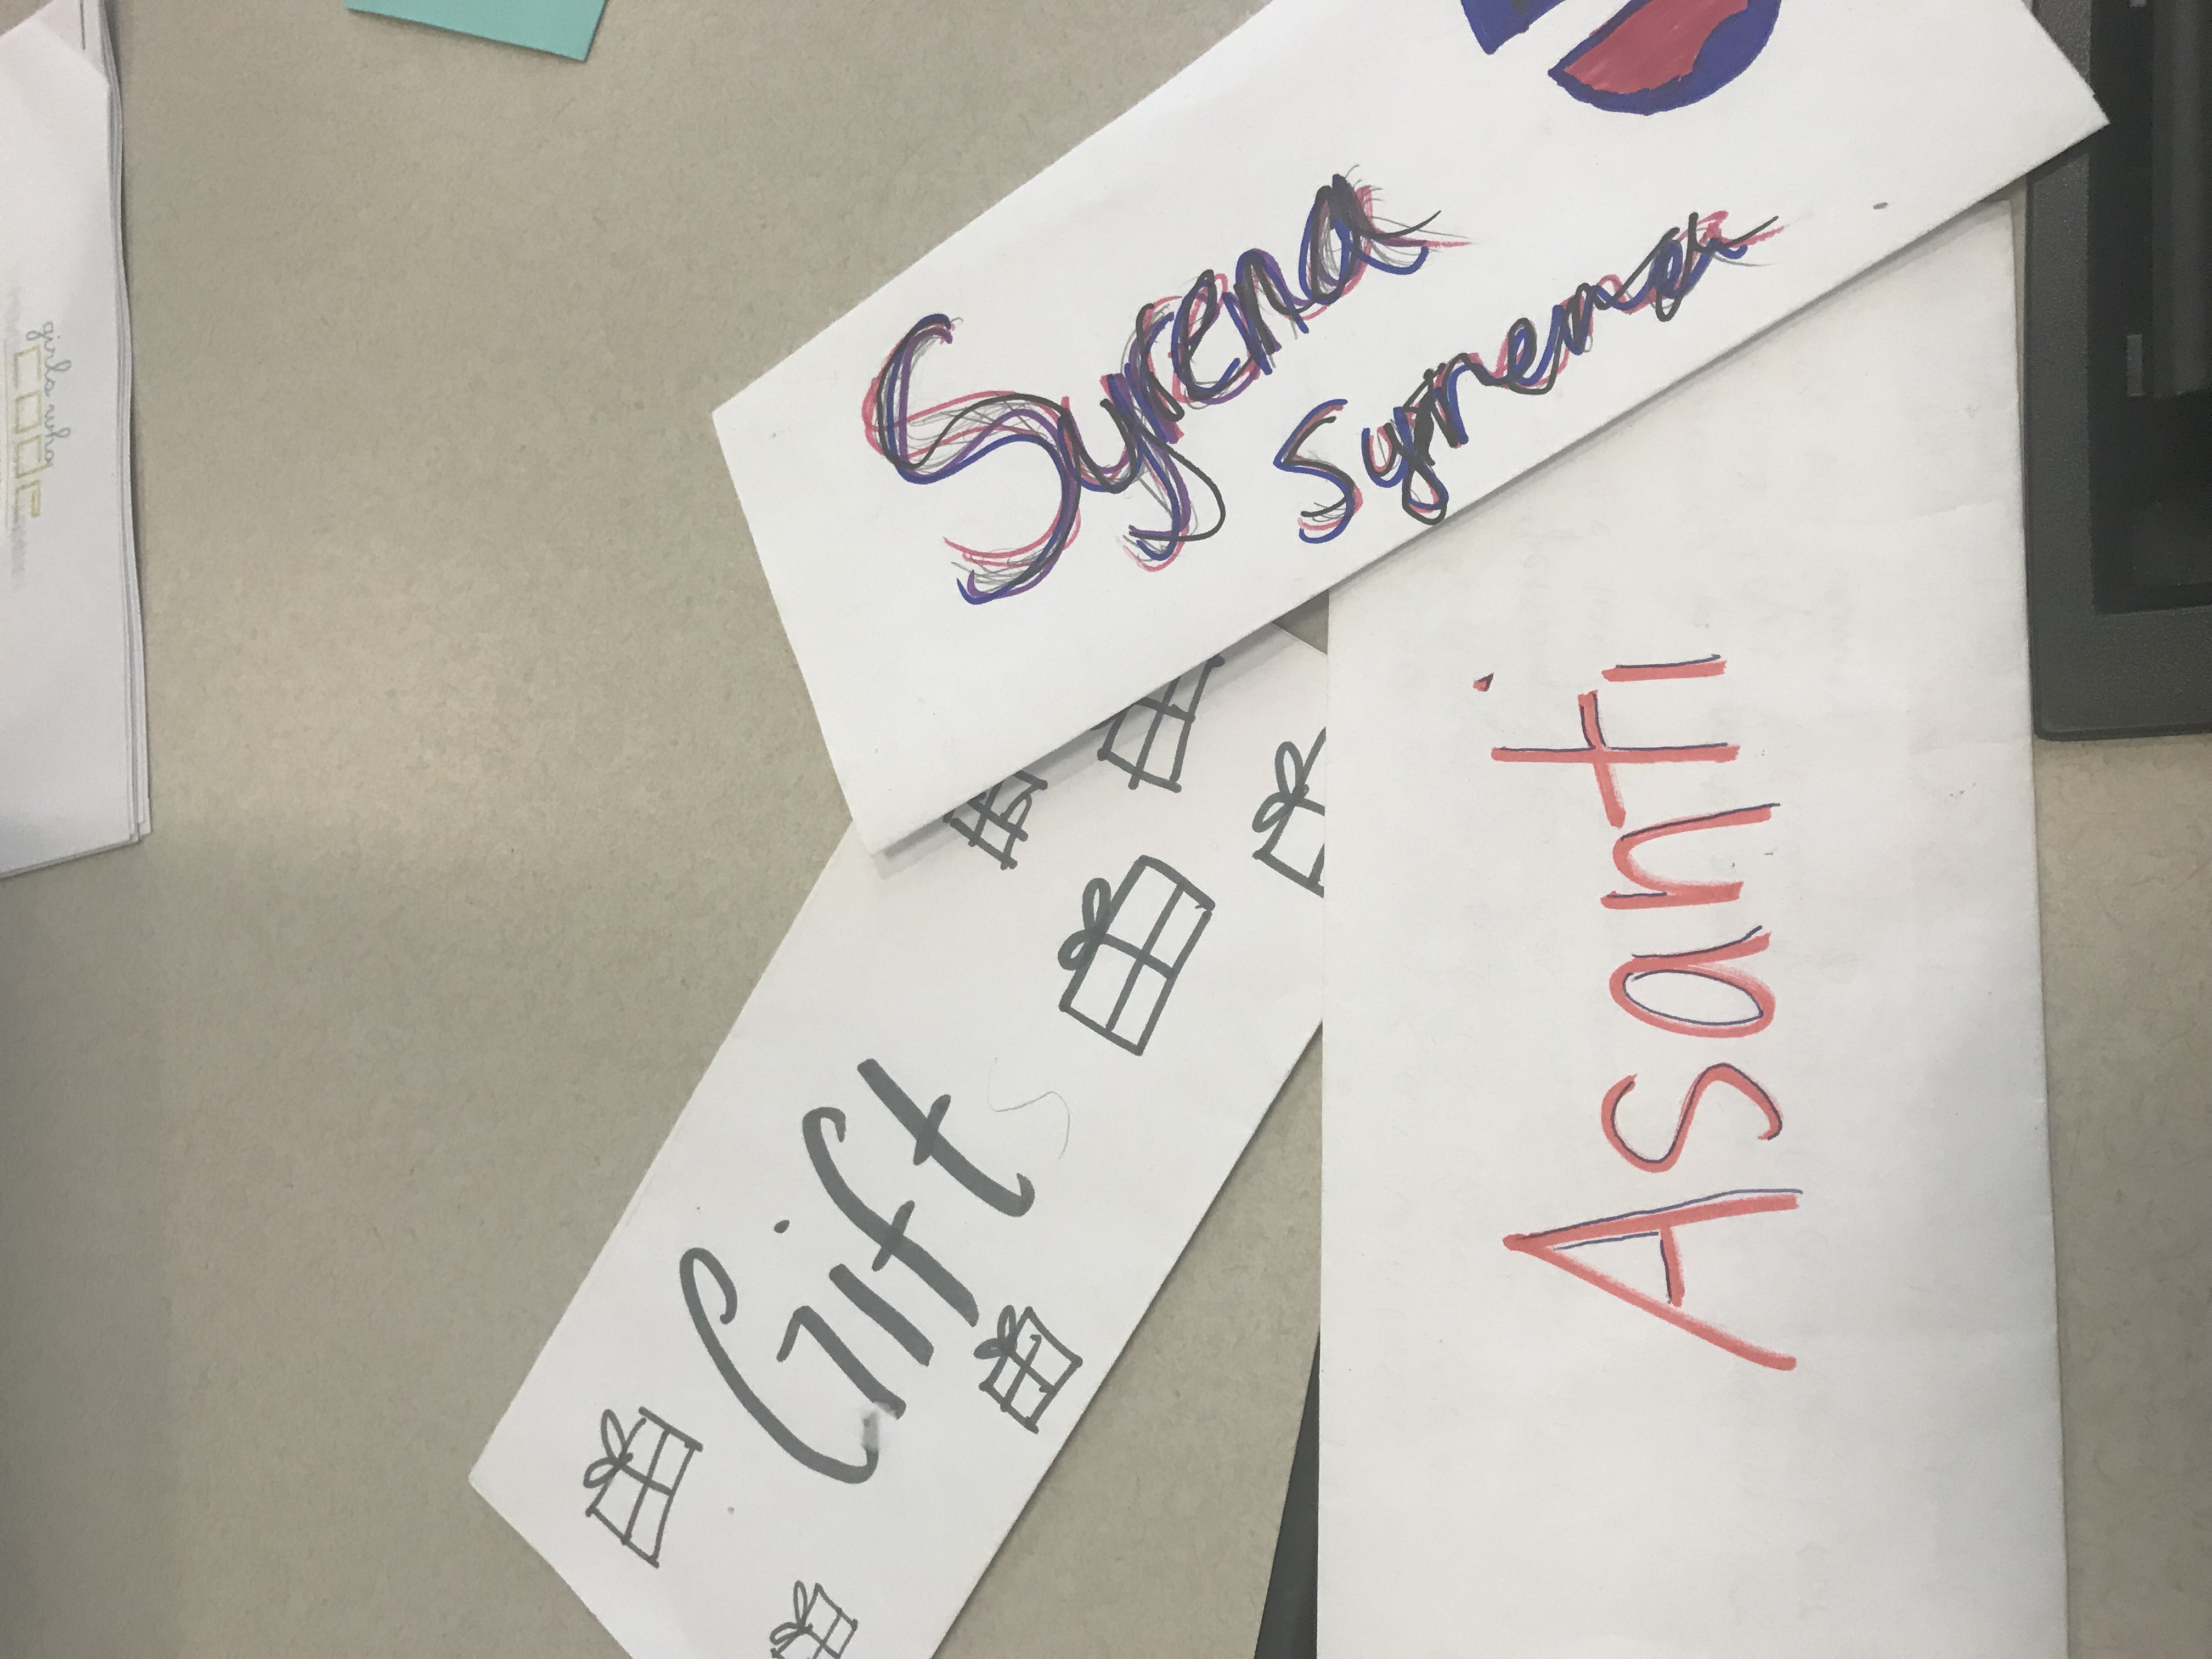 girls who
CODE
Gifts
Syrena
Syrema
Asanti